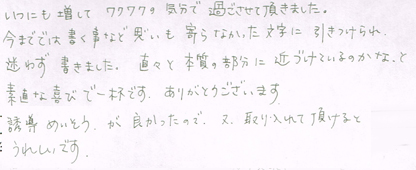 いつにも増して ワクワクの 気分で 過ごさせて頂きました。
今までは 書く事など 思いも 寄らなかった文字に 引きつけられ、
迷わず 書きました。 直々と 本質の部分に 近づけているのかな、と
素直な喜びで一杯です。 ありがとうございます。
誘導 めいそう が 良かったので、又、取り入れて 頂けると
うれしいです。